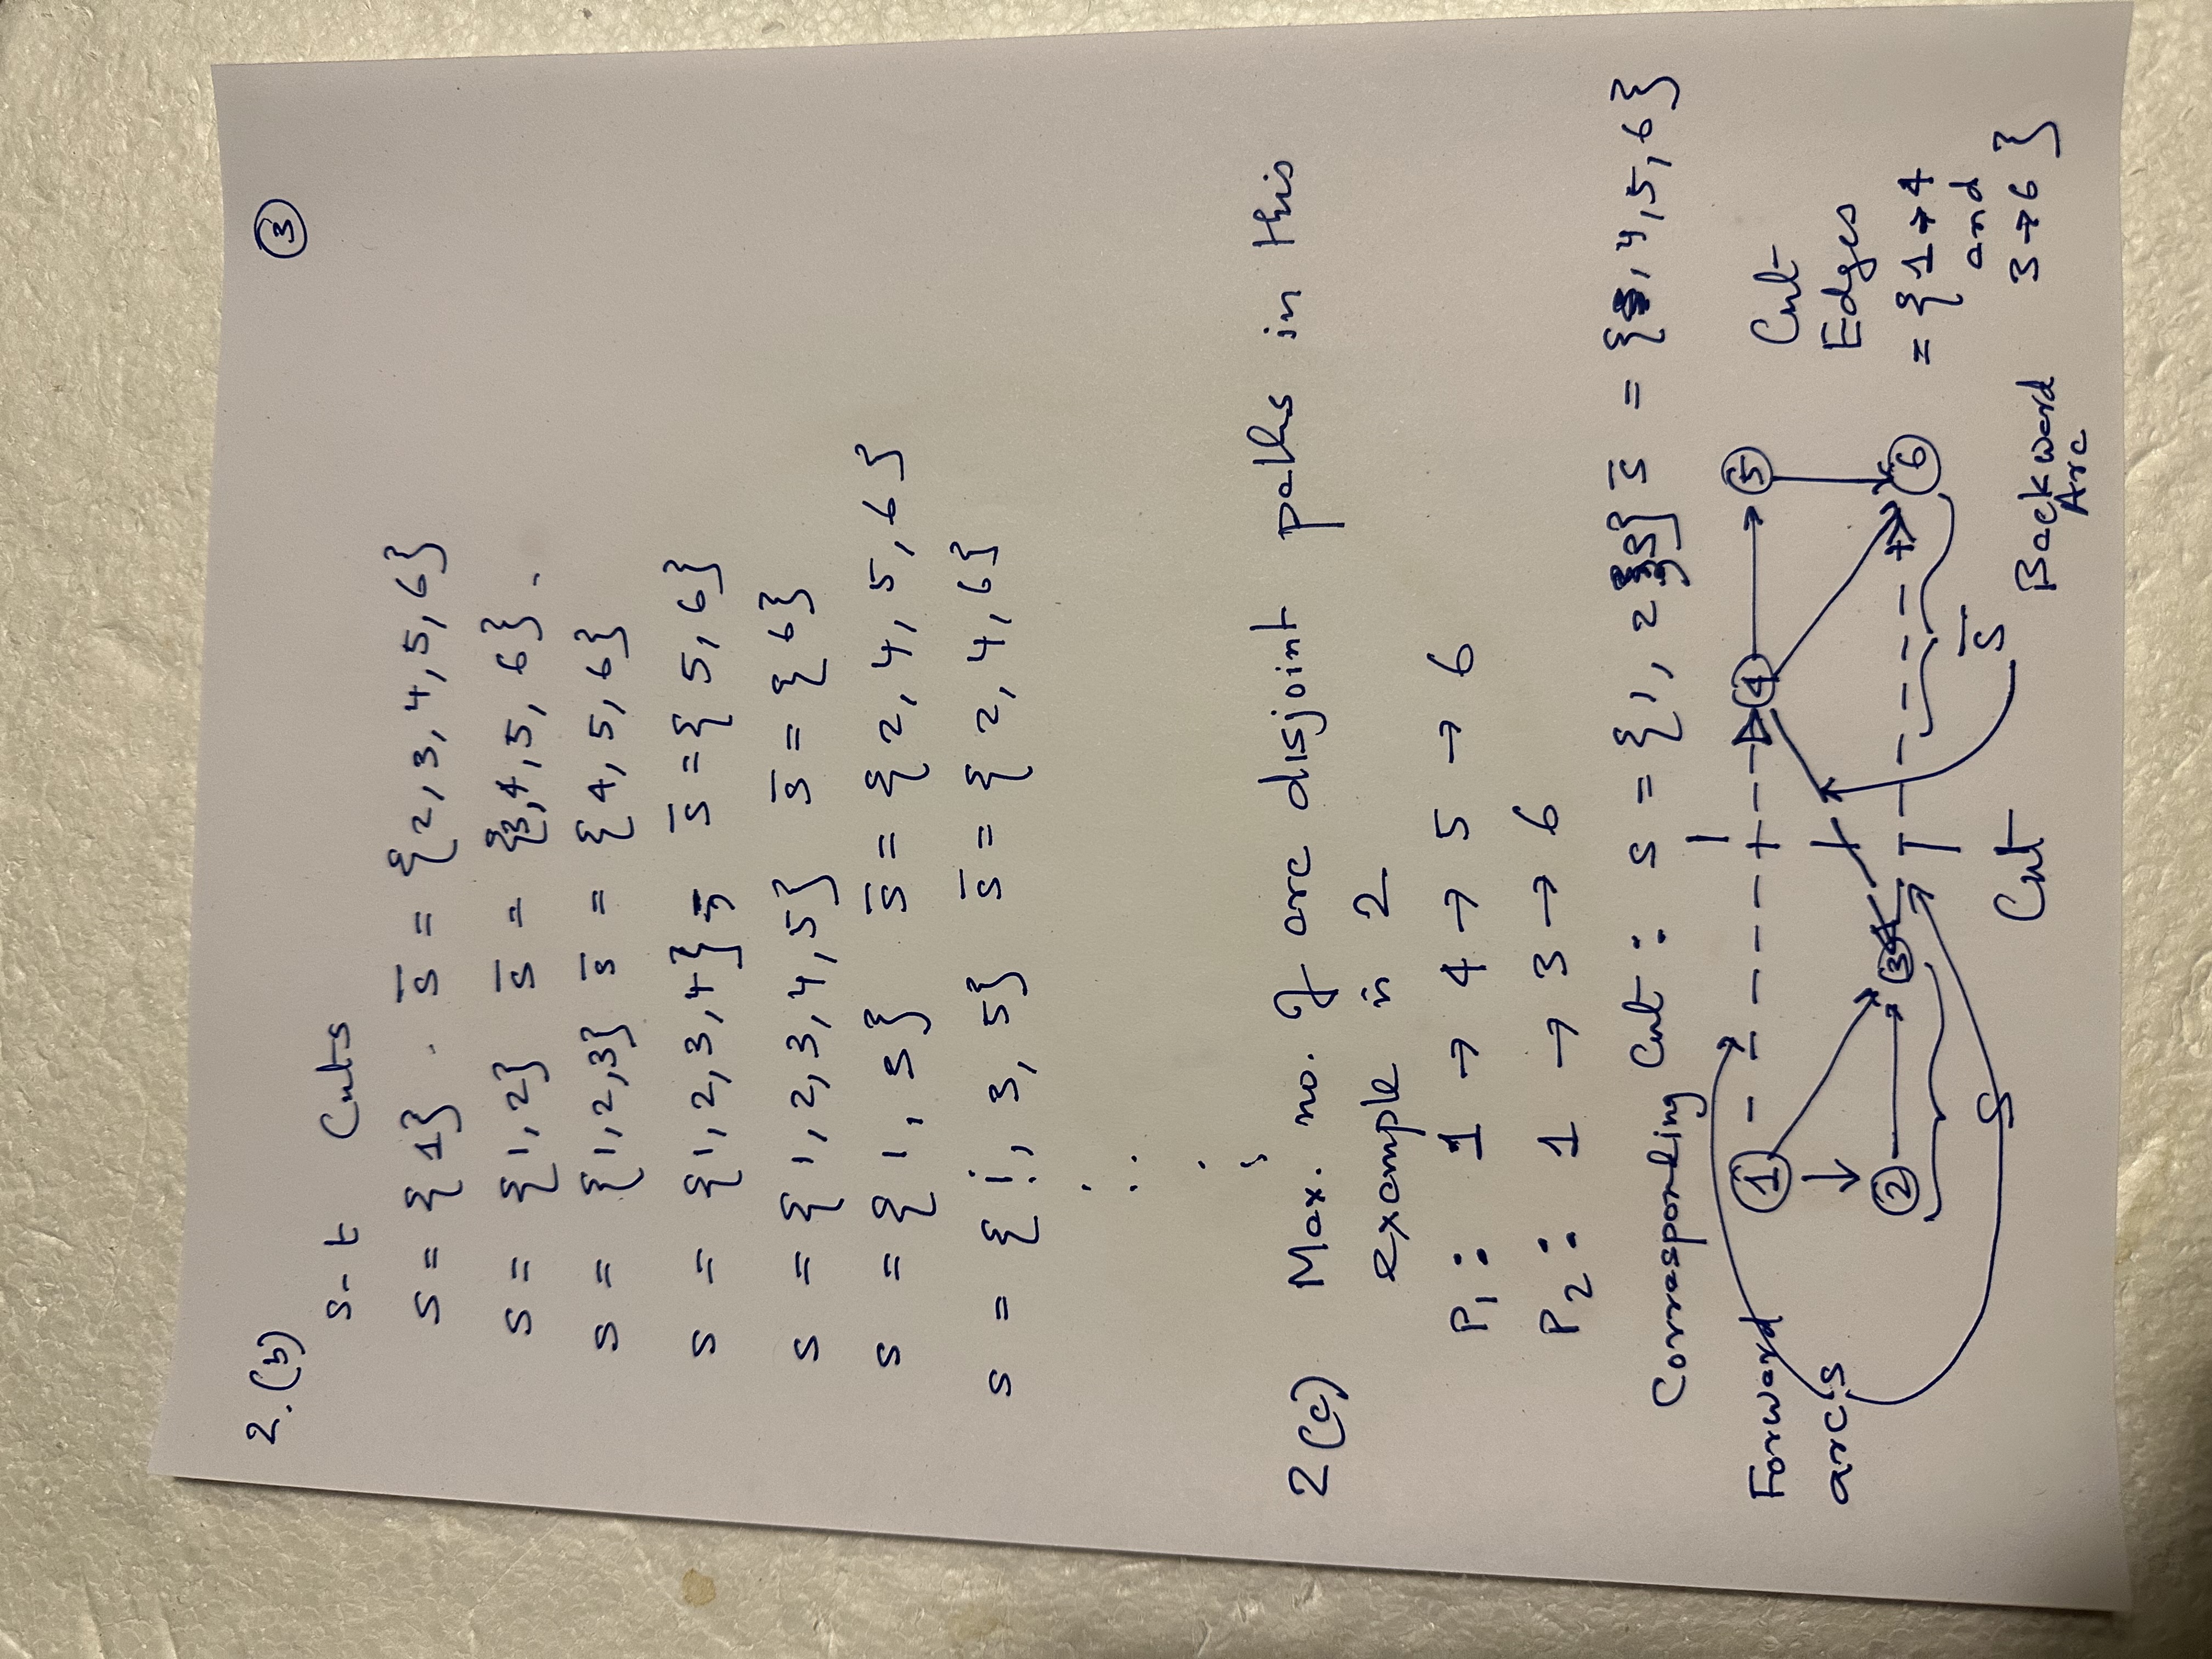 2.(b)
③
s-t Cuts
S = {1} . S̅ = {2,3,4,5,6}
S = {1,2} S̅ = {3,4,5,6}.
S = {1,2,3} S̅ = {4,5,6}
S = {1,2,3,4}; S̅ = {5,6}
S = {1,2,3,4,5} S̅ = {6}
S = {1,3} S̅ = {2,4,5,6}
S = {1,3,5} S̅ = {2,4,6}
2(c) Max. no. of arc disjoint paths in this
example is 2
P₁: 1 → 4 → 5 → 6
P₂: 1 → 3 → 6
Corresponding Cut: S = {1,2,3} S̅ = {4,5,6}
Forward
arcs
1 4 5
2 3 6
S
Cut
S̅
Backward
Arc
Cut
Edges
= {1→4
and
3→6}